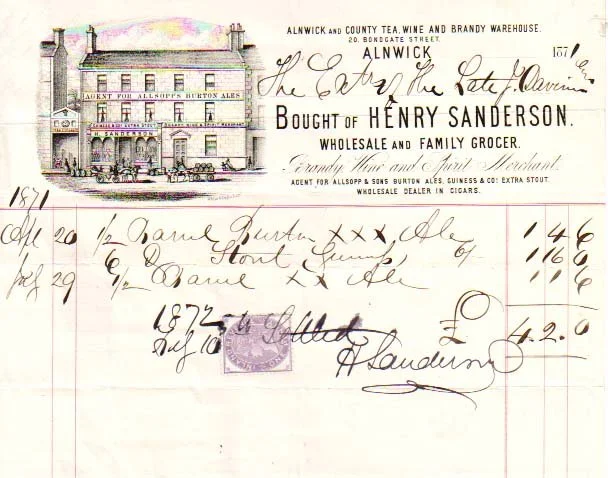 ALNWICK AND COUNTY TEA, WINE AND BRANDY WAREHOUSE.
20. BONDGATE STREET,
ALNWICK 1871
The Exors of The Late J.
BOUGHT OF HENRY SANDERSON.
WHOLESALE AND FAMILY GROCER.
Brandy Wine and Spirit Merchant.
AGENT FOR ALLSOPP & SONS BURTON ALES, GUINESS & CO: EXTRA STOUT.
WHOLESALE DEALER IN CIGARS.
AGENT FOR ALLSOPPS BURTON ALES
GUINESS & CO EXTRA STOUT
H. SANDERSON
BRANDY WINE & SPIRIT MERCHANT
1871
20 1/2 Barrel Burton XXX Ale 1 4 6
6 D Stout 6/ 1 16 0
29 1/2 Barrel XX Ale 1 1 6
£ 4. 2. 0
1872 Settled
10
H Sanderson